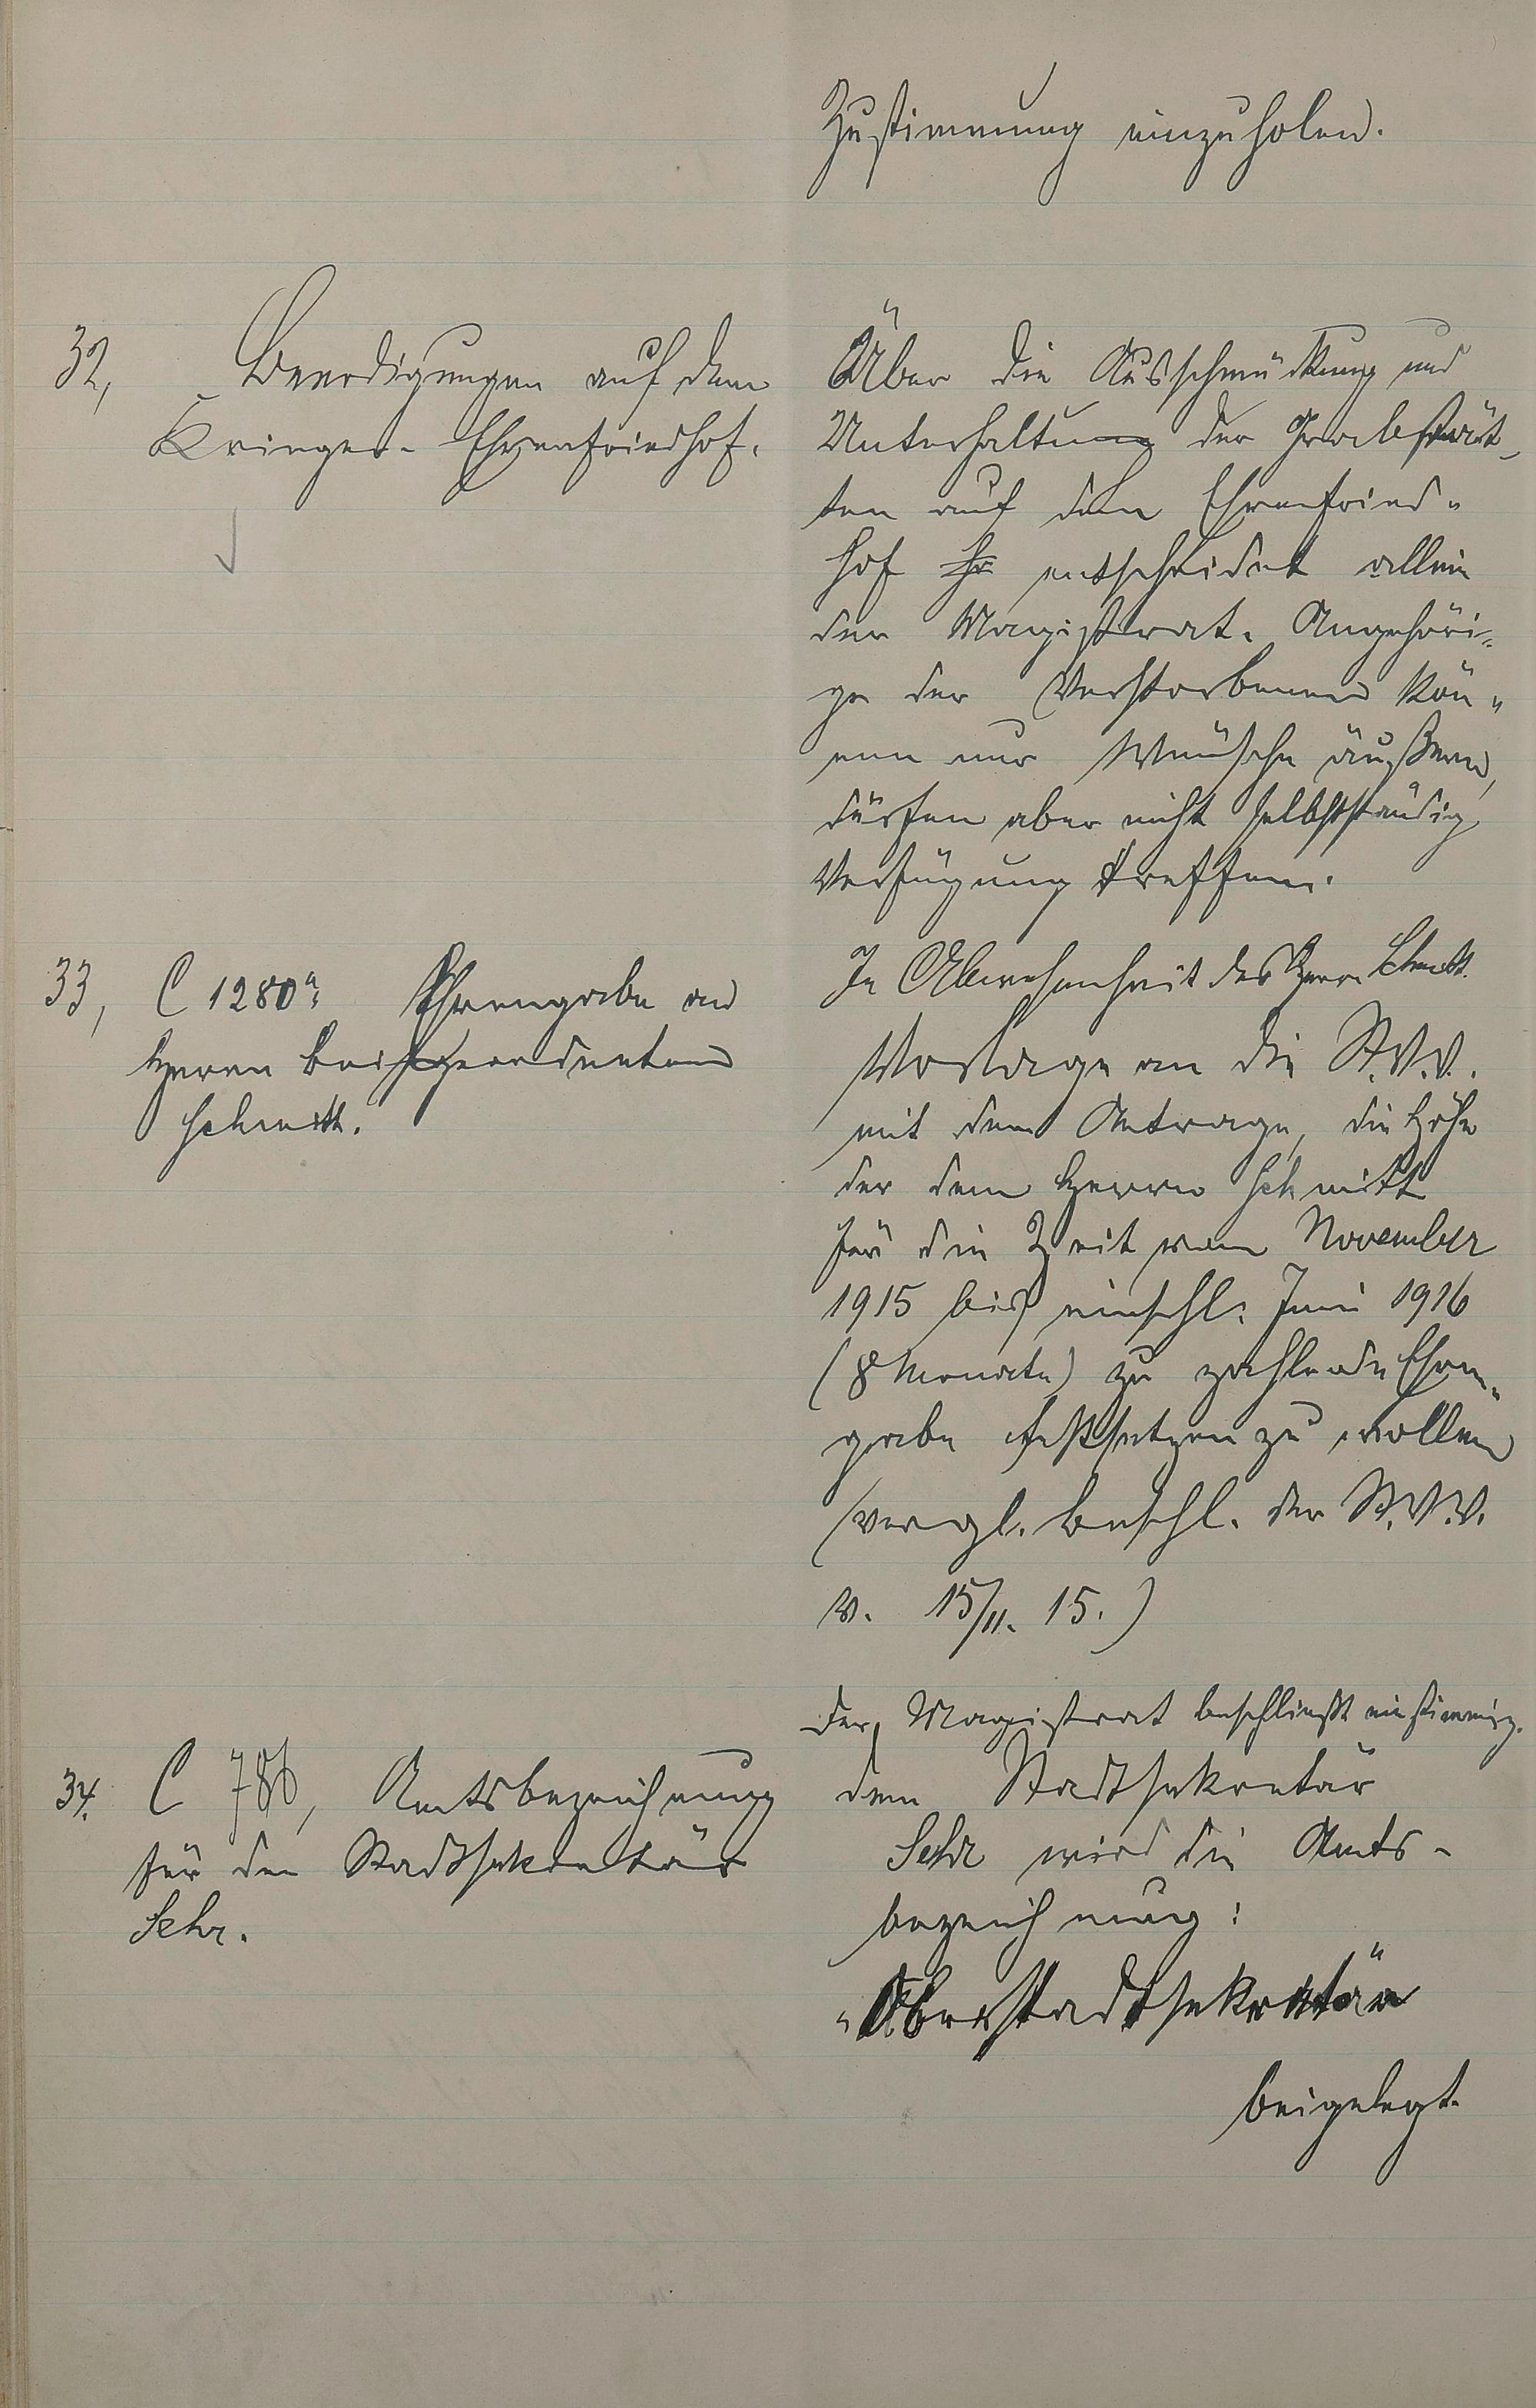 Zustimmung einzuholen.
32, Beerdigungen auf dem
Krieger-Ehrenfriedhof.
Über die Ausschmückung und
Unterhaltung der Grabstät-
ten auf dem Ehrenfried-
hof entscheidet allein
der Magistrat. Angehöri-
ge der Verstorbenen kön-
nen nur Wünsche äußern,
dürfen aber nicht selbstständig
Verfügung treffen.
33, C 1280a. Ehrengabe an
Herrn Beigeordneten
Schmitt.
In Abwesenheit des Herrn Schmitt.
Vorlage an die St.V.V.
mit dem Antrage, die Höhe
der dem Herrn Schmitt
für die Zeit vom November
1915 bis einschl. Juni 1916
(8 Monate) zu zahlende Ehren-
gabe festsetzen zu wollen
(vergl. Beschl. der St.V.V.
v. 15/11. 15.)
Der Magistrat beschließt einstimmig.
34. C 786, Amtsbezeichnung
für den Stadtsekretär
Sehr.
dem Stadtsekretär
Sehr wird die Amts-
bezeichnung:
"Oberstadtsekretär"
beigelegt.